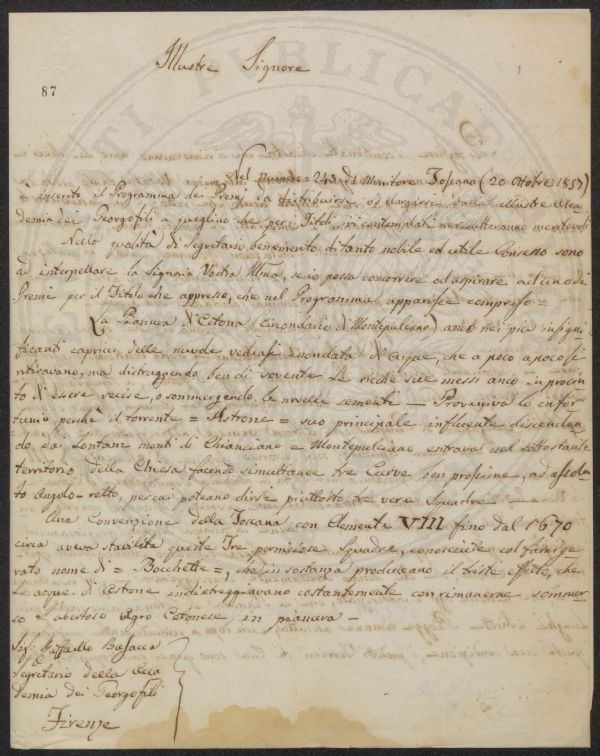 Illustre Signore
87
1
Nel numero = 243. di Monitore Toscano (20. Ottobre 1857)
è inserito il Programma de' Premi da distribuirsi, od elargirsi dalla illustre Acca
demia dei Georgofili a jueglino che per i Titoli ivi contemplati ne resulteranno meritevoli
Nella qualità di Segretario benemerito di tanto nobile ed utile Consesso sono
ad interpellare la Signoria Vostra Illma, se io possa concorrere od aspirare ad uno dei
Premi per il Titolo che appresso, che nel Programma apparisce compreso.
La Pianura d'Cetona (Circondario di Montepulciano) anco nei più insigni
ficanti capricci delle nuvole vedeasi inondata d'acque, che a poco a poco si
ritiravano, ma distruggendo ben di sovente le ricche sue messi anco in procin
to d'essere recise, o sommergendo le novelle sementi — Proveniva lo infor
tunio perchè il torrente = Astrone = suo principale influente discenden
do dai lontani monti di Chianciano e Montepulciano entrava nel sottostante
territorio della Chiesa facendo simultanee tre Curve ben prossime, ad assolu
to angolo-retto, per cui poteano dirsi piuttosto tre vere Squadre —
Una Convenzione della Toscana con Clemente VIII fino dal 1670
circa aveva stabilita queste Tre perniciose Squadre, conosciute col famige
rato nome di = Bocchette =, che in sostanza producevano il triste effetto, che
le acque di Astrone indietreggiavano costantemente con rimanerne sommer
so l'ubertoso Agro Cetonese in pianura —
Sig. Raffaello Busacca
Segretario della Acca
demia dei Georgofili
Firenze